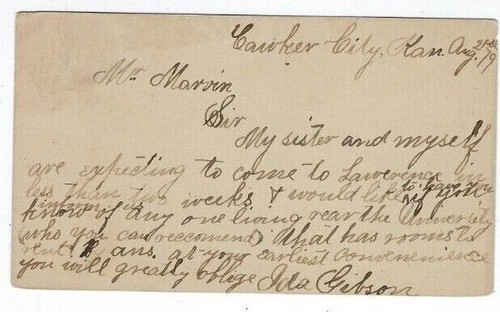 Cawker City, Kan. Aug. 21st /79
Mr Marvin
Sir
My sister and myself
are expecting to come to Lawerence in
less than two weeks & would like to have you
inform us if you
know of any one living near the University
(who you can reccomend) that has rooms to
rent? & ans. at your earliest convenience
you will greatly oblige Ida Gibson